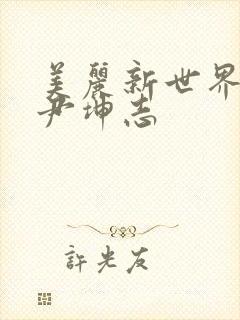 美麗新世界
尹坤志
許光友